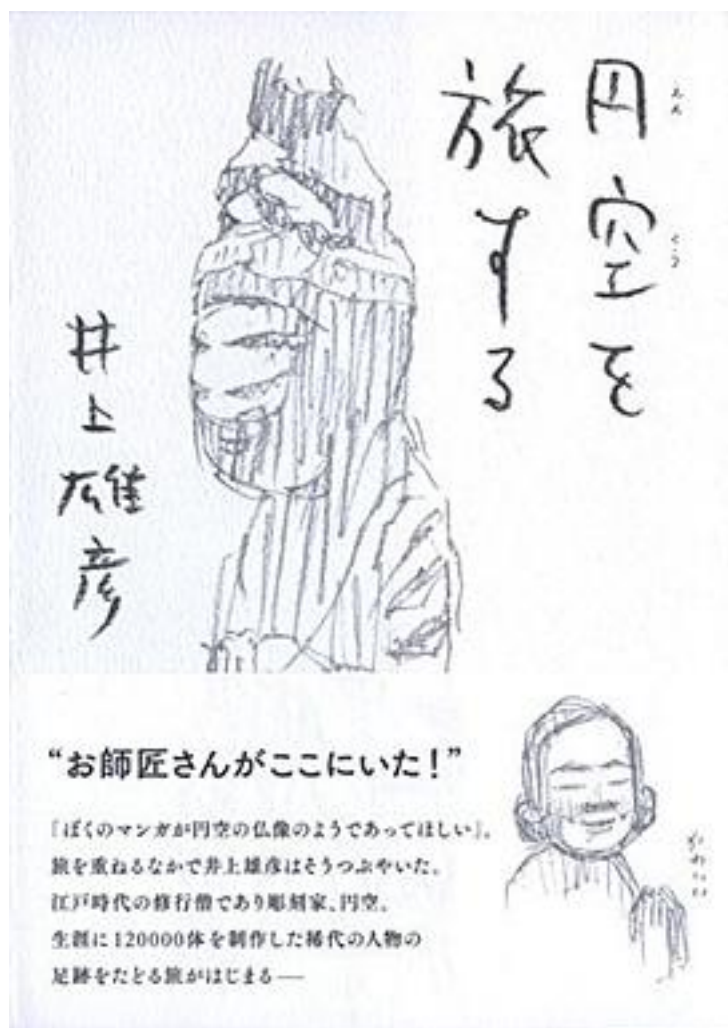 円空を
えんくう
旅する
井上雄彦
“お師匠さんがここにいた!”
『ぼくのマンガが円空の仏像のようであってほしい』。
旅を重ねるなかで井上雄彦はそうつぶやいた。
江戸時代の修行僧であり彫刻家、円空。
生涯に120000体を制作した稀代の人物の
足跡をたどる旅がはじまる──